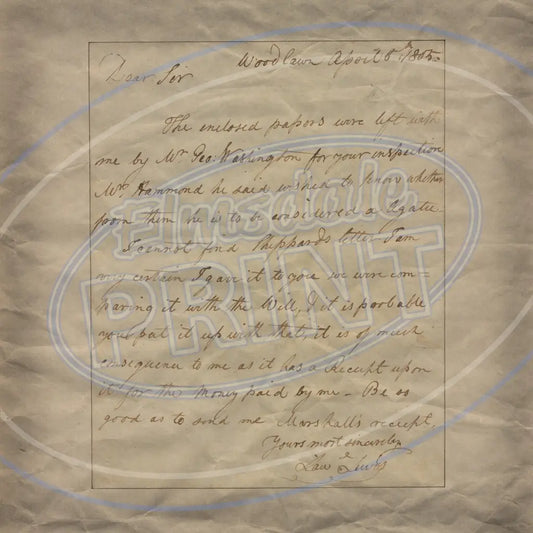 Woodlawn April 8th 1805.
Dear Sir
The enclosed papers were left with
me by Mr. Geo: Washington for your inspection
Mr. Hammond he said wished to know whether
from them he is to be considered a Legatee.
I cannot find Sheppards letter I am
very certain I gave it to you we were com=
paring it with the Will, & it is probable
you put it up with that, it is of much
consequence to me as it has a Receipt upon
it for the money paid by me - Be so
good as to send me Marshall's receipt.
Yours most sincerely
Law Lewis
Elmsdale
PRINT